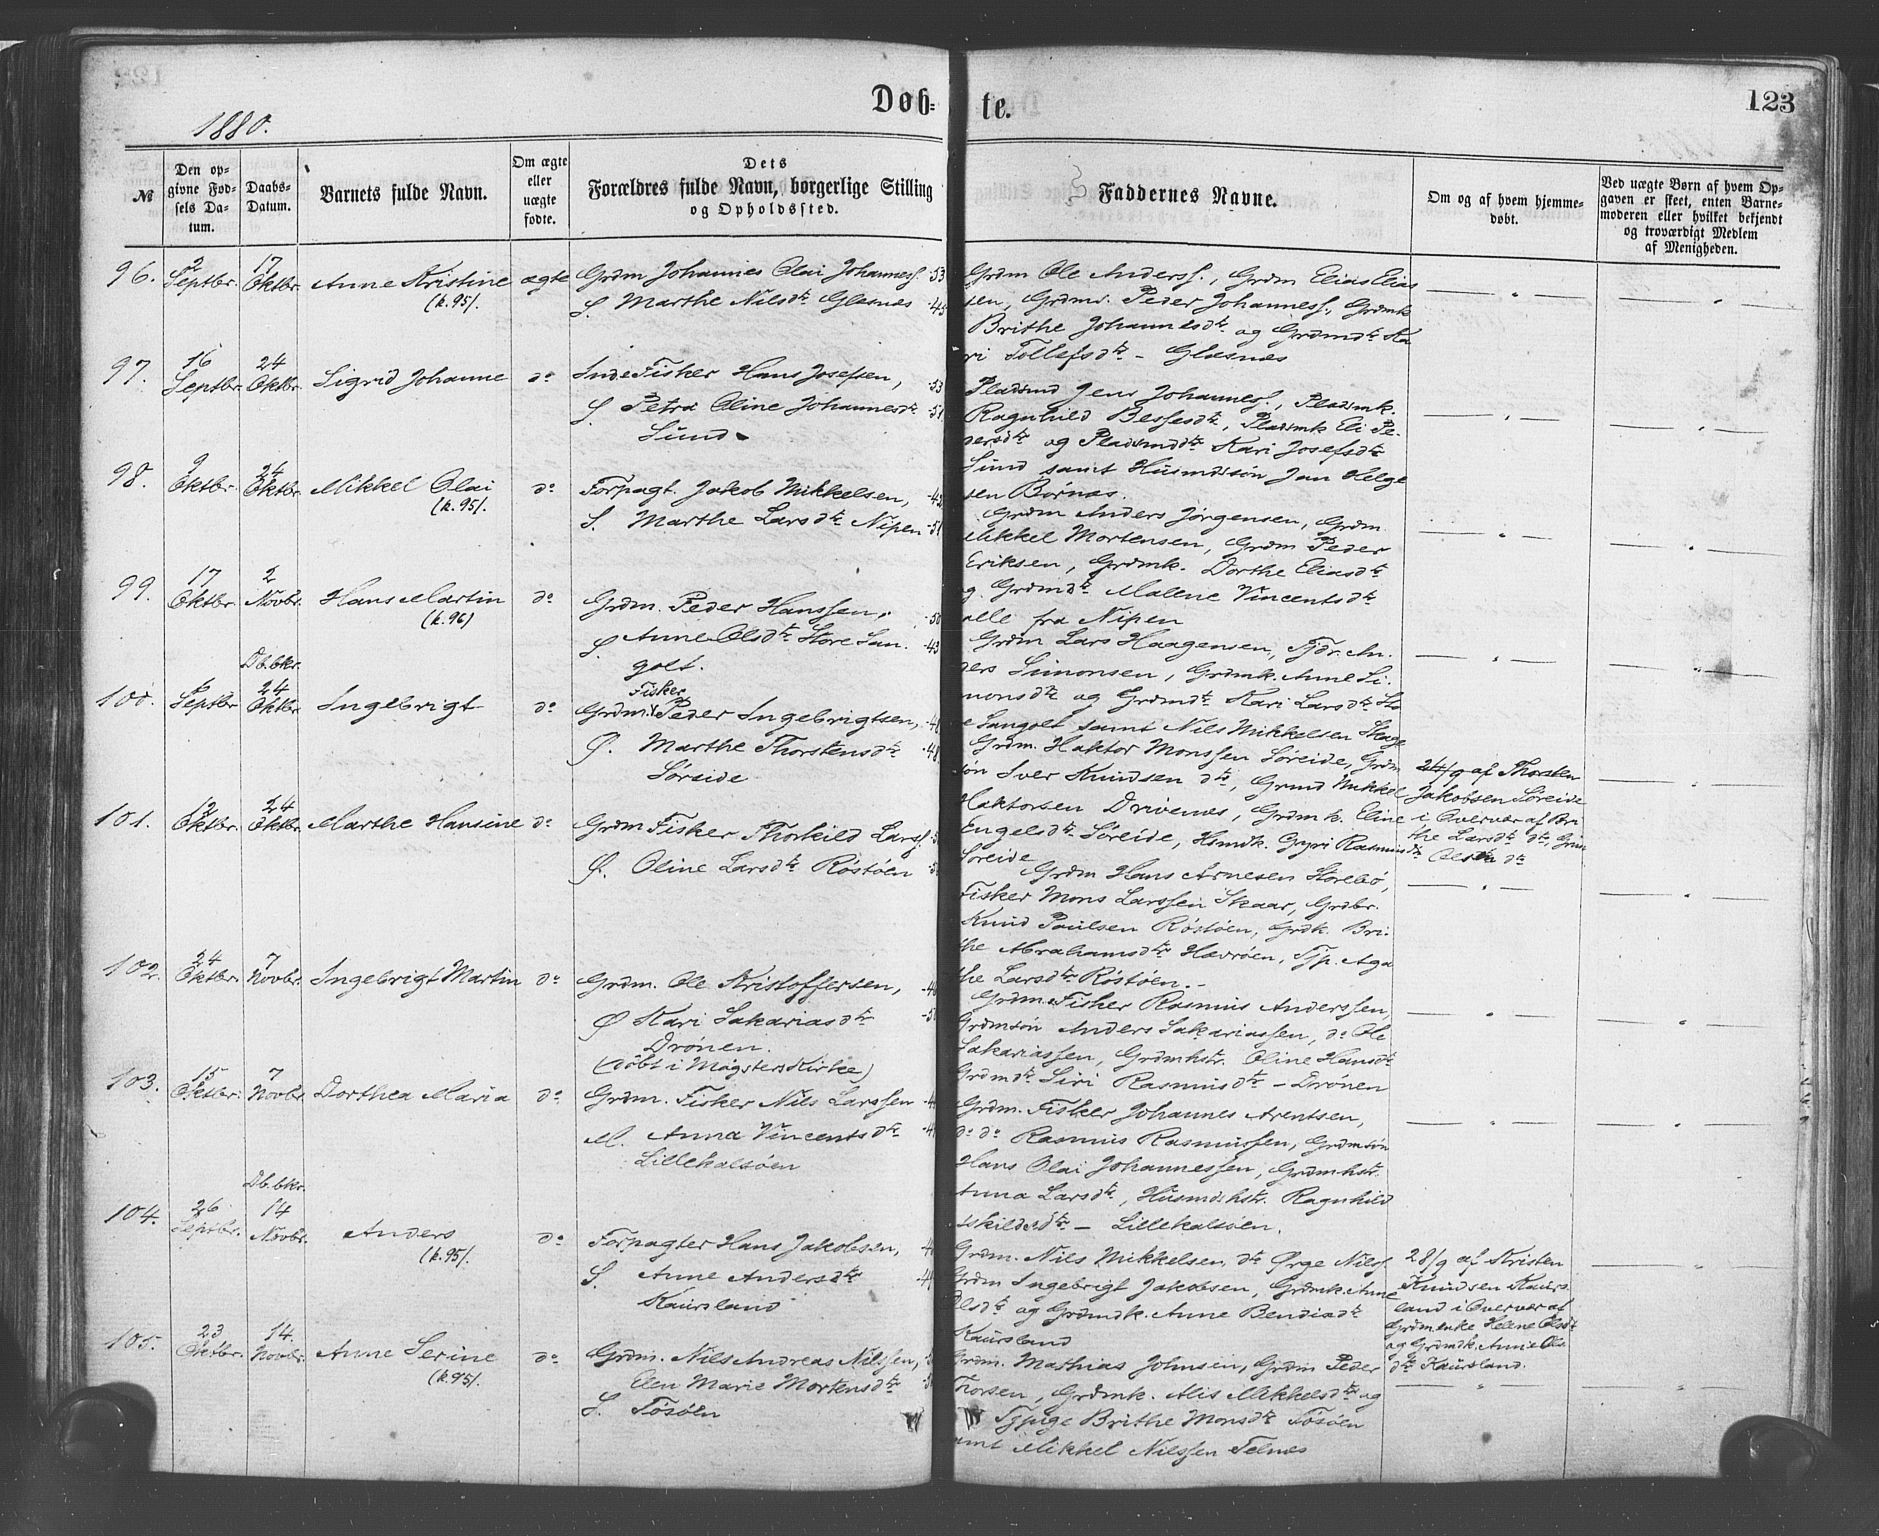 123
Døb=
te.
1880.
№
Den op-
givne Fød-
sels Da-
tum.
Daabs-
Datum.
Barnets fulde Navn.
Om ægte
eller
uægte
fødte.
Dets
Forældres fulde Navn, borgerlige Stilling
og Opholdssted.
Faddernes Navne.
Om og af hvem hjemme-
døbt.
Ved uægte Børn af hvem Op-
gaven er skeet, enten Barne-
moderen eller hvilket bekjendt
og troværdigt Medlem
af Menigheden.
96.
2 Septbr.
17 Oktbr.
Anne Kristine
(k. 95).
ægte
Grdm Johannes Olai Johanness. -53
S. Marthe Nilsdtr Glesnæs -45
Grdm Ole Anderss., Grdm Elias Elias
sen, Grdms. Peder Johanness., Grdmk
Brithe Johannesdtr og Grdmdtr Ka
ri Tollefsdtr - Glesnæs
97.
16 Septbr.
24 Oktbr.
Sigrid Johanne
do
Inde Fisker Hans Josefsen, -53
S. Petra Oline Johannesdtr -51
Sund
Pladsmd Jens Johanness., Pladsmk.
Ragnhild Bessesdtr, Pladsmk Eli Pe-
dersdtr og Pladsmdtr Kari Josefsdtr
Sund samt Husmdssøn Jan Helge
sen Børnæs.
98.
9 Oktbr.
24 Oktbr.
Mikkel Olai
(k. 95).
do
Forpagt. Jakob Mikkelsen, -42
S. Marthe Larsdtr Nipen -51
Grdm Anders Jørgensen, Grdm
Mikkel Mortensen, Grdm Peder
Eriksen, Grdmk. Dorthe Eliasdtr
og Grdmdtr Malene Vincentsdtr
alle fra Nipen
99.
17 Oktbr.
2 Novbr.
Hans Martin
(k. 96)
do
Grdm. Peder Hanssen, -50
S. Anne Olsdtr Store San- -43
golt.
Grdm Lars Haagensen, Tjdr. An-
ders Simonsen, Grdmk. Anne Si-
monsdtr og Grdmdtr Kari Larsdtr Sto
re Sangolt samt Nils Mikkelsen Skage
100.
6 Septbr
Db. bkr.
24 Oktbr.
Ingebrigt
do
Fisker
Grdm. Peder Ingebrigtsen,
Ø. Marthe Thorstensdtr -48.
Søreide
Grdm. Haktor Monssen Søreide, Grdm
søn Iver Knudsen do, Grmd Mikkel
Haktorsen Drivenes, Grdmk. Eline
Engelsdtr Søreide, Hsmdk. Gyri Rasmusdtr
Søreide
24/9 af Thorsten
Jakobsen Søreide
i Overvær af Bri
the Larsdtr do,
Olsdtr do
101.
12 Oktbr.
24 Oktbr.
Marthe Hansine
do
Grdm Fisker Thorkild Larss.
Ø. Oline Larsdtr Røstøen
Grdm Hans Arnesen Storebø,
Fisker Mons Larssen Skaar, Grdbr.
Knud Poulsen Røstøen, Grdk. Bri-
the Abrahamsdtr Hevrøen, Tjp. Aga
the Larsdtr Røstøen.
102.
24 Oktbr.
7 Novbr.
Ingebrigt Martin
do
Grdm. Ole Kristoffersen,
Ø Kari Sakariasdtr
Drönen.
(döbt i Møgster Kirke)
Grdm. Fisker Rasmus Anderssen,
Grdmsøn Anders Sakariassen, do Ole
Sakariassen, Grdmhstr. Oline Hansdtr
Grdmdtr Siri Rasmusdtr - Drönen
103.
15 Oktbr.
7 Novbr.
Dorthea Maria
do
Grdm. Fisker Nils Larssen
M. Anna Vincentsdtr
Lillekalsöen
Grdm. Fisker Johannes Arentsen,
do do Rasmus Rasmussen, Grdmsøn
Hans Olai Johannessen, Grdmhstr.
Anna Larsdtr, Husmdshstr. Ragnhild
Askildsdtr - Lillekalsöen.
104.
26 Septbr.
Db. bkr.
14 Novbr.
Anders
(k. 95).
do
Forpagter Hans Jakobsen,
S. Anne Andersdtr
Kaursland
Grdm. Nils Mikkelsen, do Ørge Nilss.
Grdm Ingebrigt Jakobsen, Grdmk. Anne
Olsdtr og Grdmdk. Anne Bendixdtr
Kaursland
28/9 af Kristen
Knudsen Kaurs-
land i Overvær af
Grdmenke Helene Olsdtr
og Grdmdk. Anne Ols
dtr Kaursland.
105.
23 Oktbr.
14. Novbr.
Anne Serine
(k. 95).
do
Grdm. Nils Andreas Nilssen,
Elen Marie Mortensdtr
S. Tösöen
Grdm. Mathias Johnsen, Grdm Peder
Thorsen, Grdmk. Alis Mikkelsdtr og
Tjpige Brithe Monsdtr Tösöen
samt Mikkel Nilssen Telnæs